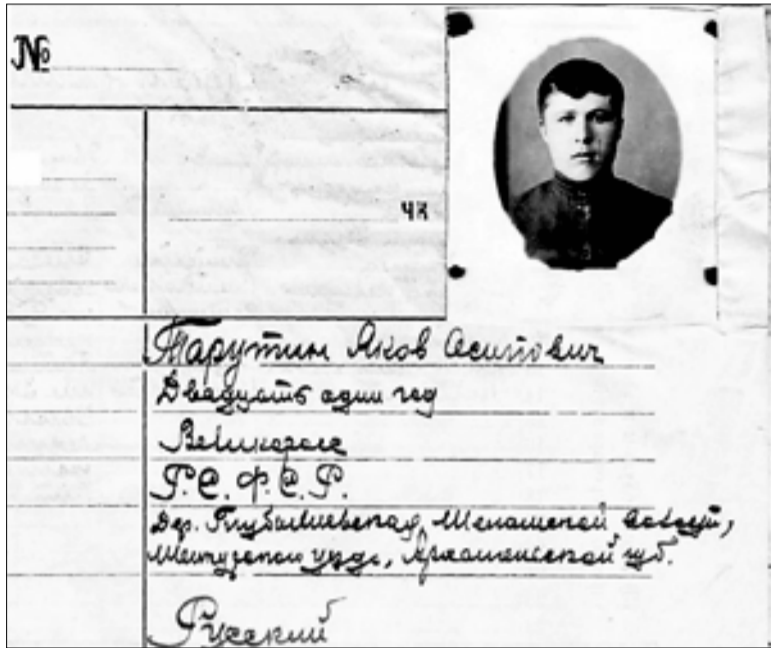 №
ЧК
Тарутин Яков Осипович
Двадцать один год
Великоросс
Р.С.Ф.С.Р.
Дер. волости,
уезда, Архангельской губ.
Русский